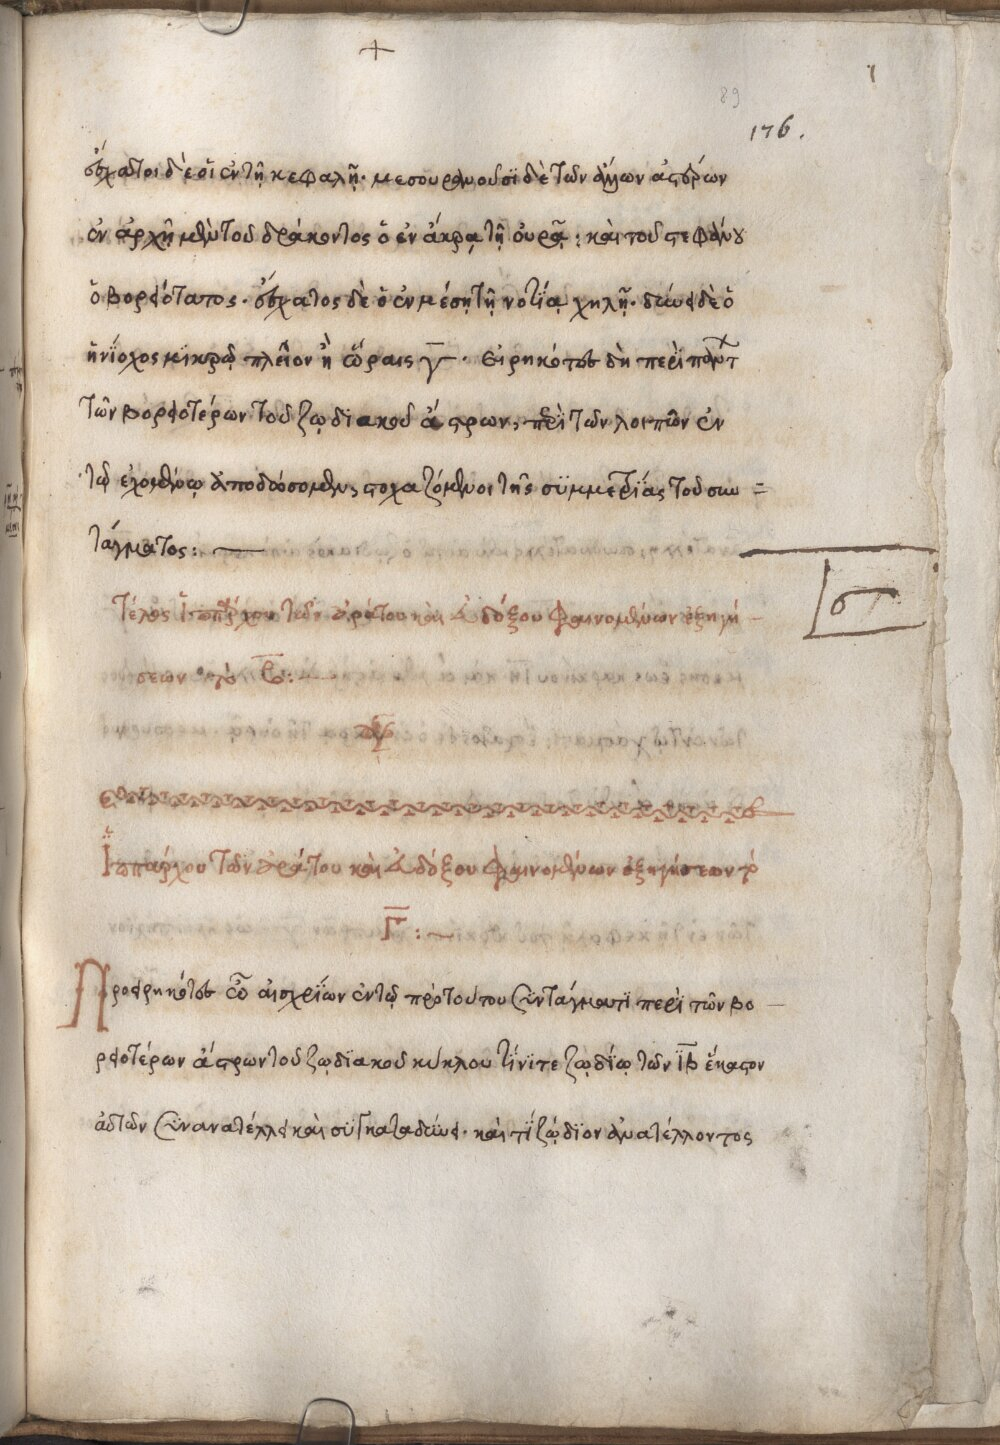 +
89
176.
ἔσχατοι δὲ οἱ ἐν τῆ κεφαλῆ. μεσουρανοῦσϊ δὲ τῶν ἄλλων ἀστέρων
ἐν ἀρχῆ μὲν τοῦ δράκοντος ὁ ἐν ἄκρα τῆ οὐρᾶ: καὶ τοῦ στεφάνου
ὁ βορειότατος. ἔσχατος δὲ ὁ ἐν μέση τῆ νοτΐα χηλῆ. δύνει δὲ ὁ
ἡνΐοχος μϊκρῶ πλεῖον ἢ ὥραις γ. Εἰρηκότες δὴ περὶ πάντ
τῶν βορειοτέρων τοῦ ζωδϊακοῦ ἄστρων, περὶ τῶν λοιπῶν ἐν
τῶ ἐχομένω ἀποδώσομεν, στοχαζόμενοι τῆς συμμετρίας τοῦ συν =
τάγματος: —
Τέλος ἱππάρχου τῶν ἀράτου καὶ εὐδόξου φαινομένων ἐξηγή —
σεων Β: —
σ
Ἱππάρχου τῶν ἀράτου καὶ εὐδόξου φαινομένων ἐξηγήσεων τὸ
Γ: ~
Προειρηκότες ὦ αἰσχρΐων ἐν τῶ πρὸ τούτου συντάγματϊ περὶ τῶν βο —
ρειοτέρων ἄστρων τοῦ ζωδϊακοῦ κύκλου τίνϊ τε ζωδίω τῶν ΙΒ ἕκαστον
αὐτῶν συνανατέλλει καὶ συγκαταδύνει. καὶ τί ζώδϊον ἀνατέλλοντος